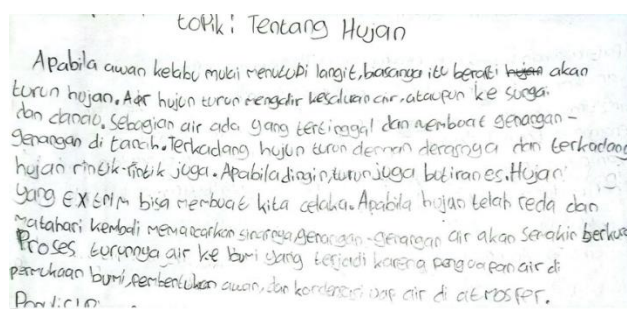 topik: Tentang Hujan
Apabila awan kelabu mulai menutupi langit, biasanya itu berarti hujan akan
turun hujan. Air hujan turun mengalir kesaluran air, ataupun ke sungai
dan danau. Sebagian air ada yang tertinggal dan membuat genangan -
genangan di tanah. Terkadang hujan turun dengan derasnya dan terkadang
hujan rintik-rintik juga. Apabila dingin, turun juga butiran es. Hujan
yang EXtrim bisa membuat kita celaka. Apabila hujan telah reda dan
matahari kembali memancarkan sinarnya, genangan-genangan air akan berkura
Proses turunnya air ke bumi yang terjadi karena penguapan air di
permukaan bumi, pembentukan awan, dan kondensasi uap air di atmosfer.